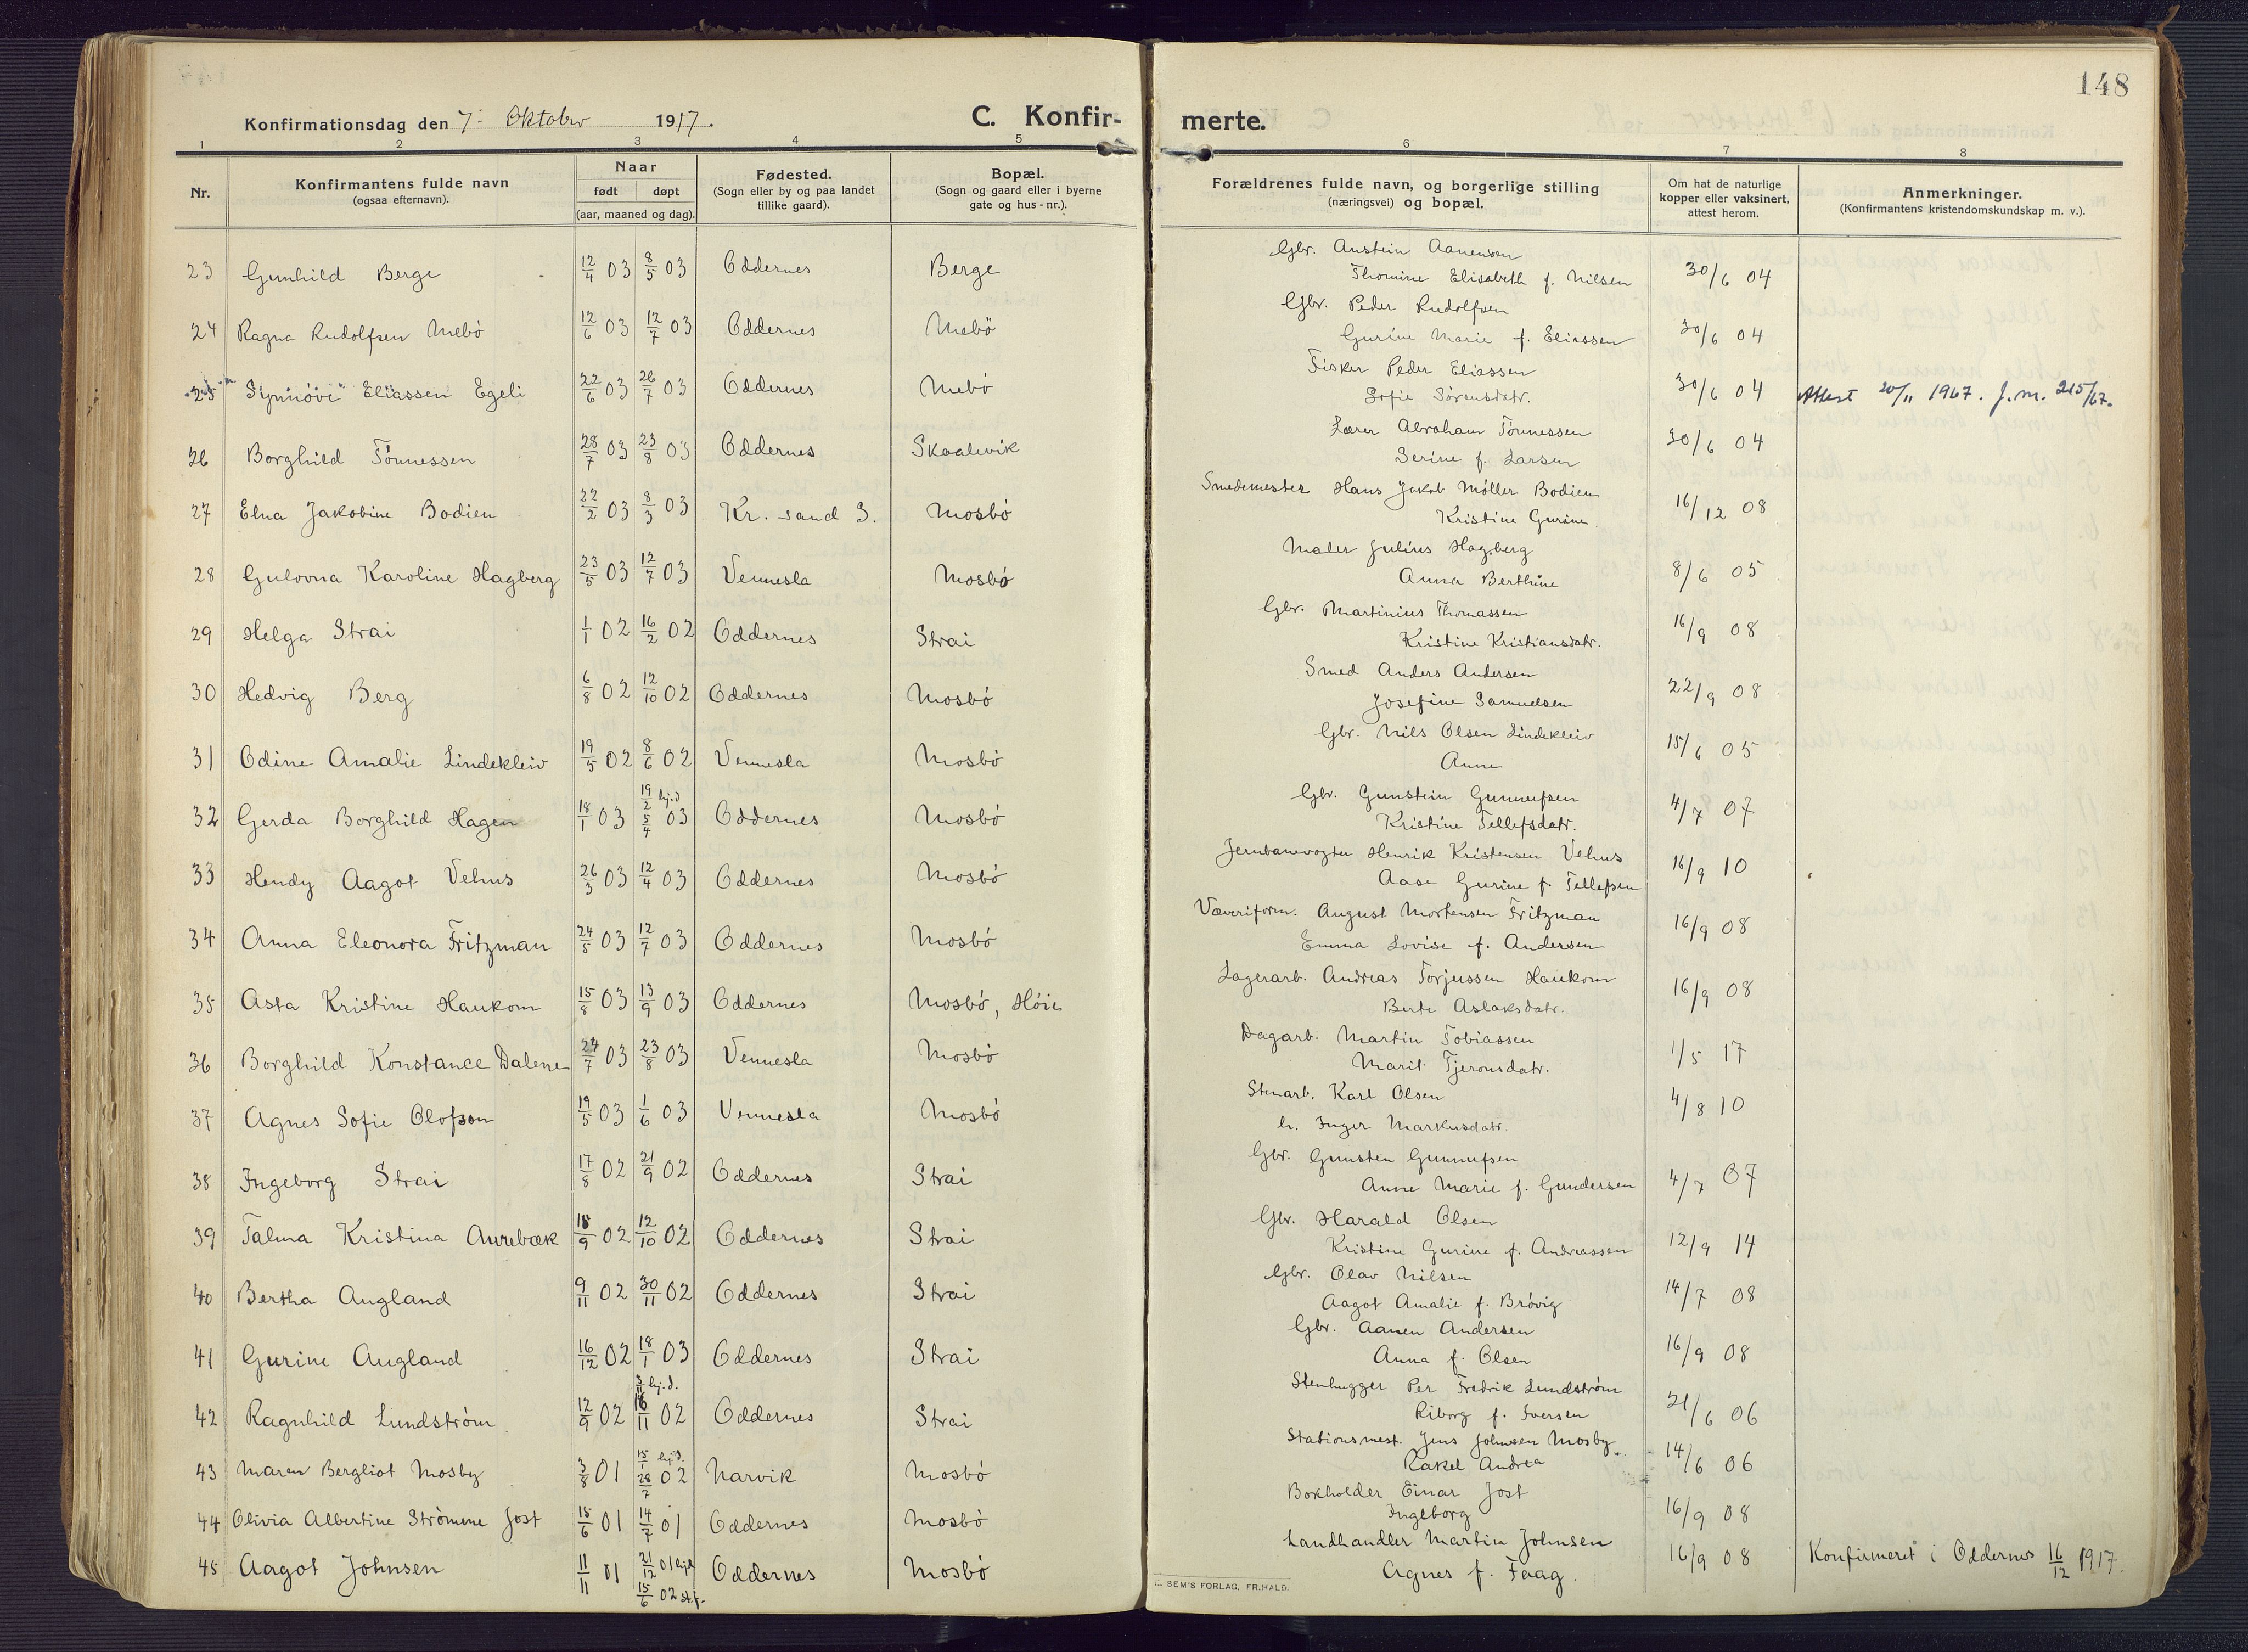 148
Konfirmationsdag den 7. Oktober 1917.
C. Konfir-
merte.
1 2 3 4 5 6 7 8
Nr.
Konfirmantens fulde navn
(ogsaa efternavn).
Naar
født døpt
(aar, maaned og dag).
Fødested.
(Sogn eller by og paa landet
tillike gaard).
Bopæl.
(Sogn og gaard eller i byerne
gate og hus-nr.).
Forældrenes fulde navn, og borgerlige stilling
(næringsvei) og bopæl.
Om hat de naturlige
kopper eller vaksinert,
attest herom.
Anmerkninger.
(Konfirmantens kristendomskundskap m. v.).
Gbr. Anstein Aanensen
23 Gunhild Berge 12/4 03 8/5 03 Oddernes Berge Thomine Elisabeth f. Nilsen 30/6 04
Gbr. Peder Rudolfsen
24 Ragna Rudolfsen Mebö 12/6 03 12/7 03 Oddernes Mebö Gurine Marie f. Eliassen 30/6 04
Fisker Peder Eliassen
25 "Synnöve" Eliassen Egeli 22/6 03 26/7 03 Oddernes Mebö Sofie Sörensdatr. 30/6 04 Attest 20/11 1967. J.nr. 215/67.
Lærer Abraham Tönnessen
26 Borghild Tönnessen 28/7 03 23/8 03 Oddernes Skaalevik Serine f. Larsen 30/6 04
Smedemester Hans Jakob Möller Bodien
27 Elna Jakobine Bodien 22/2 03 8/3 03 Kr. sand S. Mosbö Kristine Gurine. 16/12 08
Maler Julius Hagberg
28 Gulovna Karoline Hagberg 23/5 03 12/7 03 Vennesla Mosbö Anna Berthine 8/6 05
Gbr. Martinius Thomassen
29 Helga Strai 1/1 02 16/2 02 Oddernes Strai Kristine Kristiansdatr. 16/9 08
Smed Anders Andersen
30 Hedvig Berg 6/8 02 12/10 02 Oddernes Mosbö Josefine Samuelsen 22/9 08
Gbr. Nils Olsen Lindekleiv
31 Odine Amalie Lindekleiv 19/5 02 8/6 02 Vennesla Mosbö Anne 15/6 05
19/2 hj.d
Gbr. Gunstein Gunnufsen
32 Gerda Borghild Hagen 18/1 03 5/4 03 Oddernes Mosbö Kristine Tellefsdatr. 4/7 07
Jernbanevogter Henrik Kristensen Vehus
33 Hendy Aagot Vehus 26/3 03 12/4 03 Oddernes Mosbö Aase Gurine f. Tellefsen 16/9 10
Væveriform. August Mortensen Fritzman
34 Anna Eleonora Fritzman 24/5 03 12/7 03 Oddernes Mosbö Emma Lovise f. Andersen 16/9 08
Lagerarb. Andreas Torjussen Haukom
35 Asta Kristine Haukom 15/8 03 13/9 03 Oddernes Mosbö, Höie Berte Aslaksdatr. 16/9 08
Dagarb. Martin Tobiassen
36 Borghild Konstance Dalene 24/7 03 23/8 03 Vennesla Mosbö Marit Tjeronsdatr. 1/5 17
Stenarb. Karl Olsen
37 Agnes Sofie Olofsson 19/5 03 1/6 03 Vennesla Mosbö h. Inger Markusdatr. 4/8 10
Gbr. Gunsten Gunnufsen
38 Ingeborg Strai 17/8 02 21/9 02 Oddernes Strai Anne Marie f. Gundersen 4/7 07
Gbr. Harald Olsen
39 Talma Kristina Aurebæk 18/9 02 12/10 02 Oddernes Strai Kristine Gurine f. Andreassen 12/9 14
Gbr. Olav Nilsen
40 Bertha Augland 9/11 02 30/11 02 Oddernes Strai Aagot Amalie f. Brövig 14/7 08
Gbr. Aanen Andersen
41 Gurine Augland 16/12 02 18/1 03 Oddernes Strai Anna f. Olsen 16/9 08
3/11 hj.d.
Stenhugger Per Fredrik Lundström
42 Ragnhild Lundström 12/9 02 16/11 02 Oddernes Strai Riborg f. Iversen 21/6 06
15/1 hj.d.
Stationsmest. Jens Johnsen Mosby
43 Maren Bergliot Mosby 3/8 01 28/7 02 Narvik Mosbö Rakel Andrea 14/6 06
Bokholder Einar Jost
44 Olivia Albertine Strömme Jost 15/6 01 14/7 01 Oddernes Mosbö Ingeborg 16/9 08
Landhandler Martin Johnsen
45 Aagot Johnsen 11/11 01 21/12 01 hj.d. Oddernes Mosbö Agnes f. Faag. 16/9 08 Konfirmeret i Oddernes 16/12 1917.
15/6 02 st.f.
SEM'S FORLAG, FR.HALD.